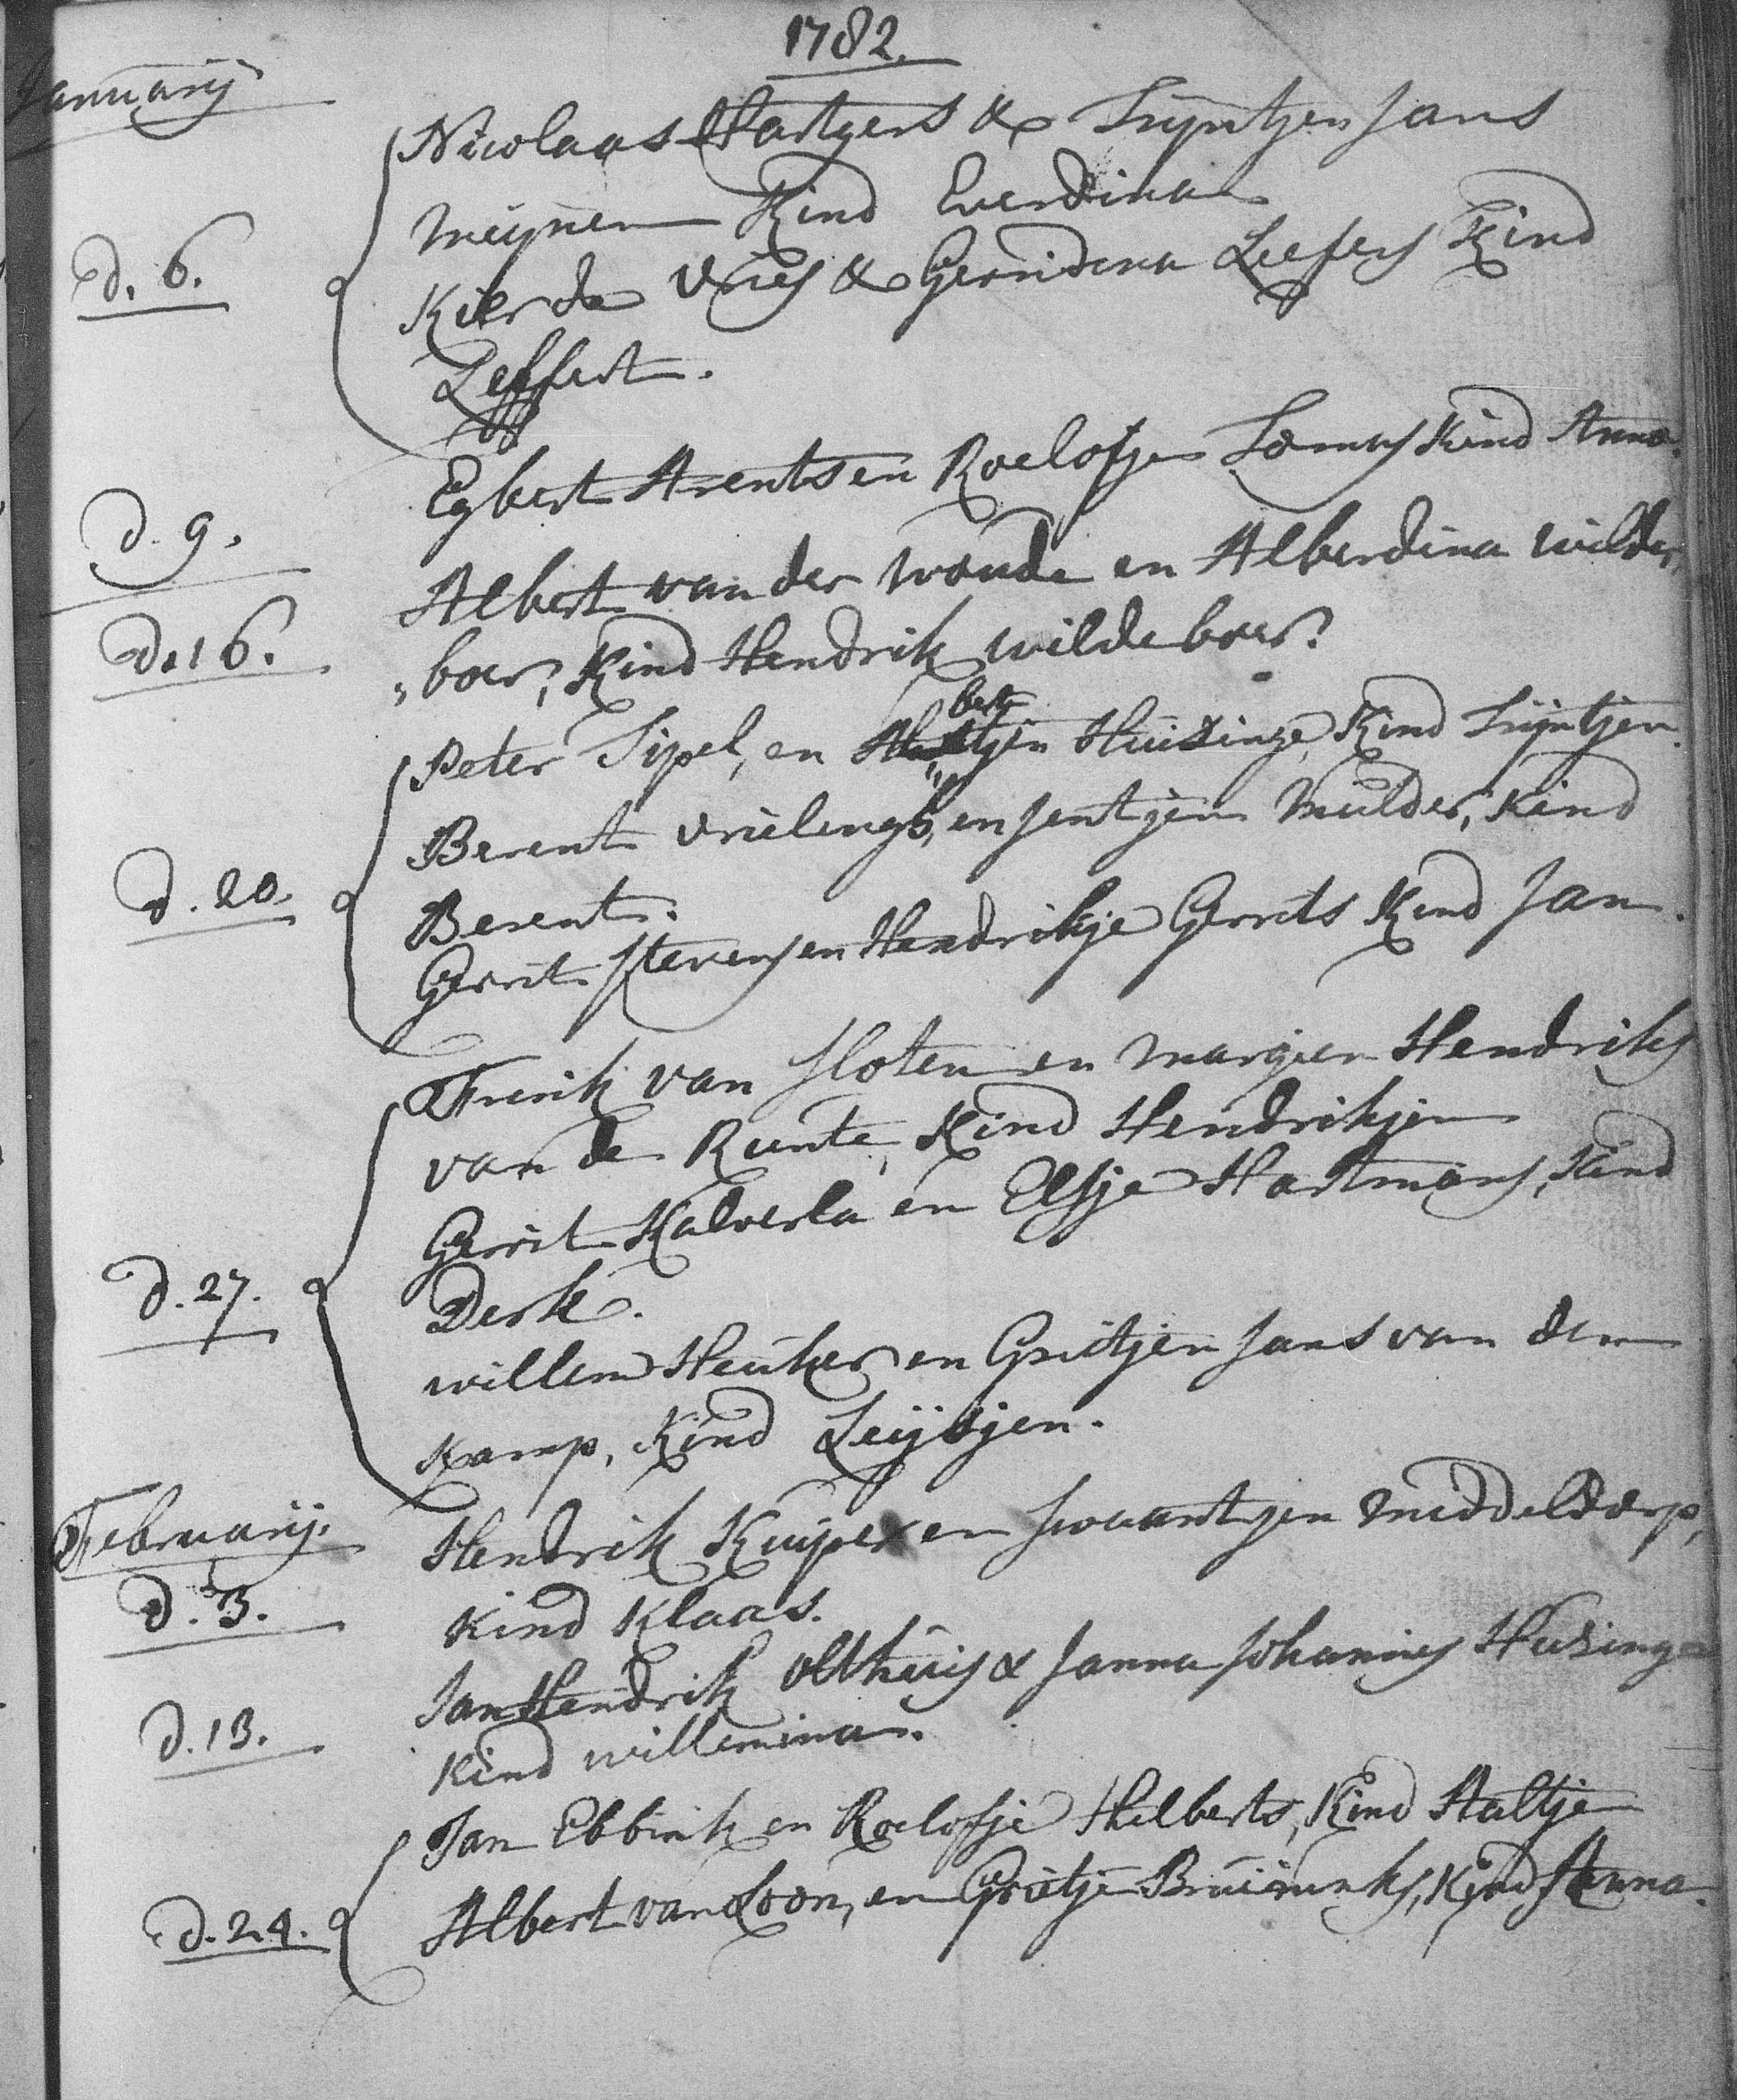 1782.
Januarij
Nicolaas Hartgers & Trijntjen Jans
d. 6.
Meijner Kind Everdina
Kier de Vries & Gerridina Leefers Kind
Leffert.
d. 9.
Egbert Arents en Roelofje Lomans Kind Anna.
d. 16.
Albert van der Woude en Alberdina Wilde„
„boer, Kind Hendrik Wildeboer.
Peter Tipel, en bertjen Huizinge, Kind Trijntjen.
d. 20.
Berent Vrielengh, en Jentjen Mulder, Kind
Berent.
Gerrit Stevens en Hendrikje Gerrits Kind Jan.
Frerik van Sloten en Margjen Hendriks
van de Runte, Kind Hendrikjen
d. 27.
Gerrit Kalverla en Elsje Hartmans, Kind
Derk.
Willem Heuker en Grietjen Jans van den
Kamp, Kind Leijsjen.
Februarij.
d. 3.
Hendrik Kuiper en Swaantjen Middeldorp,
Kind Klaas.
d. 13.
Jan Hendrik Olthuis & Janna Johannes Huizinge
Kind Willemina.
d. 24.
Jan Ebbink en Roelofje Hilberts, Kind Aaltje
Albert van Loon, en Grietje Bruinenks, Kind Anna.